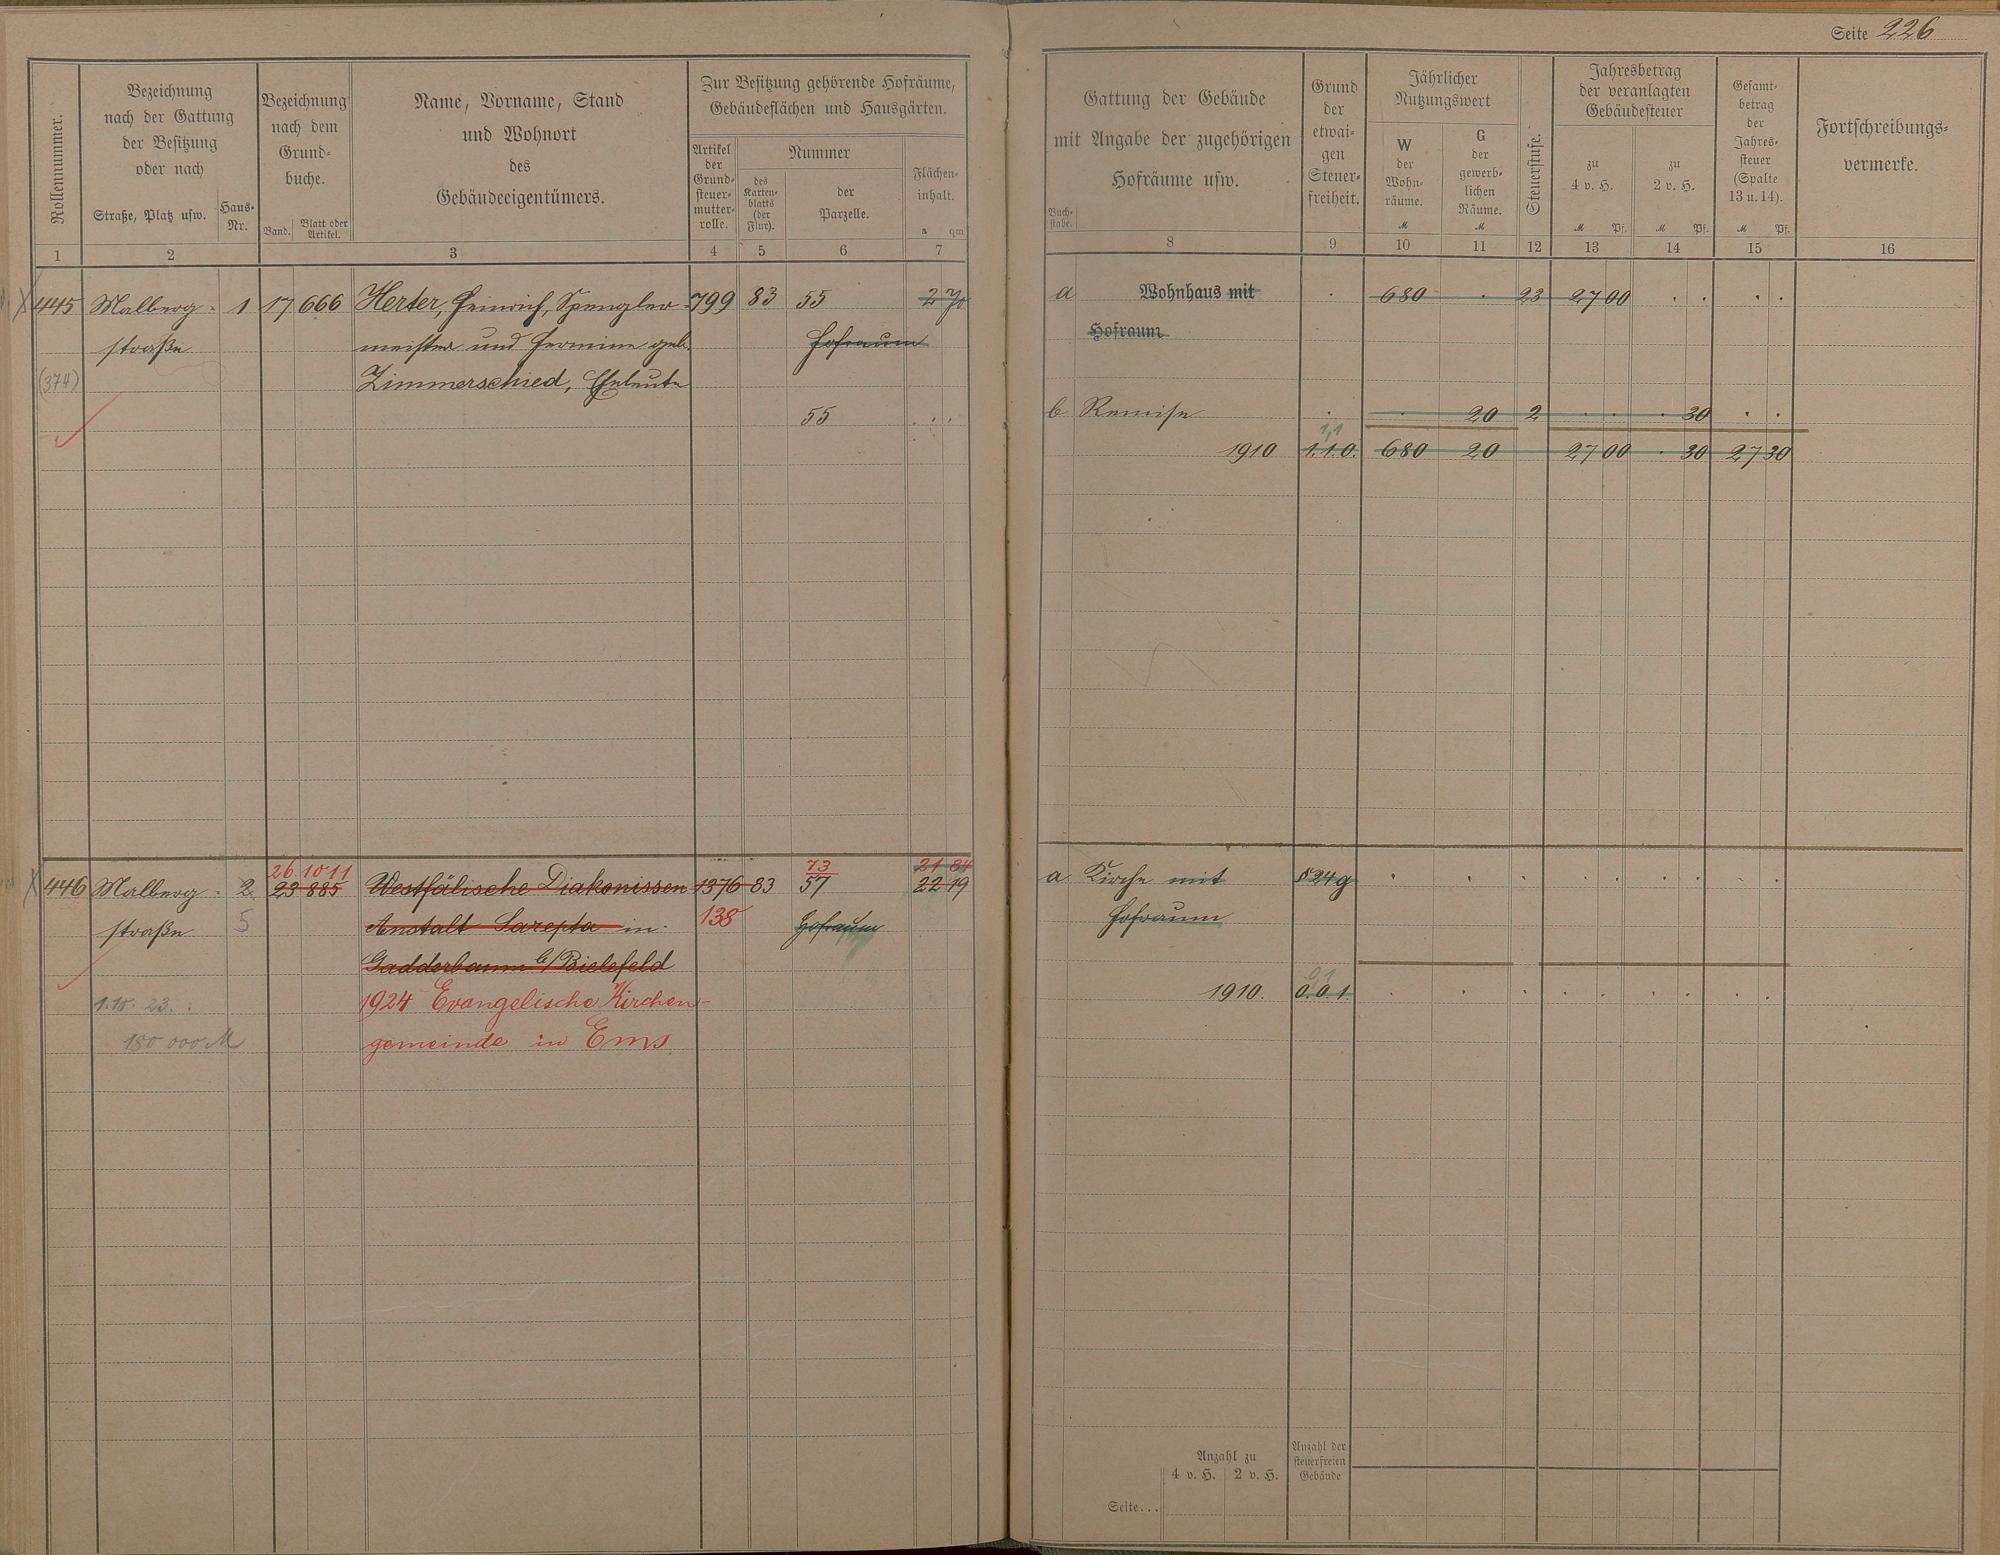 Seite 226
Rollennummer.
Bezeichnung
nach der Gattung
der Besitzung
oder nach
Straße, Platz usw.
Haus-
Nr.
Bezeichnung
nach dem
Grund-
buche.
Band.
Blatt oder
Artikel.
Name, Vorname, Stand
und Wohnort
des
Gebäudeeigentümers.
Zur Besitzung gehörende Hofräume,
Gebäudeflächen und Hausgärten.
Artikel
der
Grund-
steuer-
mutter-
rolle.
Nummer
des
Karten-
blatts
(der
Flur).
der
Parzelle.
Flächen-
inhalt.
a qm
Gattung der Gebäude
mit Angabe der zugehörigen
Hofräume usw.
Buch-
stabe.
Grund
der
etwai-
gen
Steuer-
freiheit.
Jährlicher
Nutzungswert
W
der
Wohn-
räume.
M
G
der
gewerb-
lichen
Räume.
M
Steuerstufe.
Jahresbetrag
der veranlagten
Gebäudesteuer
zu
4 v. H.
M Pf.
zu
2 v. H.
M Pf.
Gesamt-
betrag
der
Jahres-
steuer
(Spalte
13 u. 14).
M Pf.
Fortschreibungs-
vermerke.
1 2 3 4 5 6 7 8 9 10 11 12 13 14 15 16
445 Malberg- 1 17 666 Herter, Heinrich, Spengler- 799 83 55 2 70 a Wohnhaus mit . 680 . 23 27 00 . . . .
straße meister und Hermine geb. Hofraum Hofraum
(374) Zimmerschied, Eheleute
55 . . b Remise . . 20 2 . . . 30 . .
1,1
1910 1.1.0. 680 20 27 00 . 30 27 30
26 1011 73 21 84
446 Malberg- 2 23 885 Westfälische Diakonissen 1376 83 57 22 19 a Kirche mit § 24 g
straße 5 Anstalt Sarepta in 138 Hofraum Hofraum
Gadderbaum b/Bielefeld
0 1
1.10. 23. : 1924 Evangelische Kirchen- 1910. 0.0.1.
150 000 M gemeinde in Ems
Anzahl zu
4 v. H. 2 v. H.
Anzahl der
steuerfreien
Gebäude
Seite...